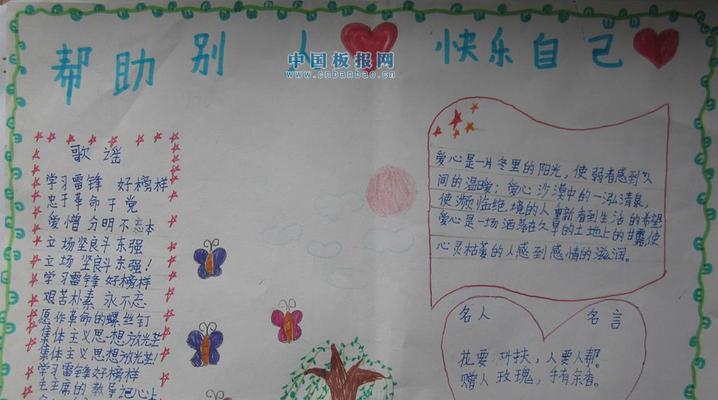 帮助别人 快乐自己
中国板报网
www.cnbanbao.cn
歌谣
学习雷锋 好榜样
忠于革命 于党
爱憎 分明不忘本
立场坚良斗东强
立场 坚良斗东强!
学习雷锋 好榜样
艰苦朴素 永不忘
愿作革命的螺丝钉
集体主义思想放光芒
集体主义思想放光芒
学习雷锋好榜样
毛主席的教导记心上
爱心是一片冬里的阳光,使弱者感到人
间的温暖;爱心沙漠中的一泓清泉,
使濒临绝境的人重新看到生活的希望
爱心是一场洒落在久旱的土地上的甘露,使
心灵枯萎的人感到感情的滋润。
名人 名言
花要叶扶,人要人帮。
赠人玫瑰,手有余香。